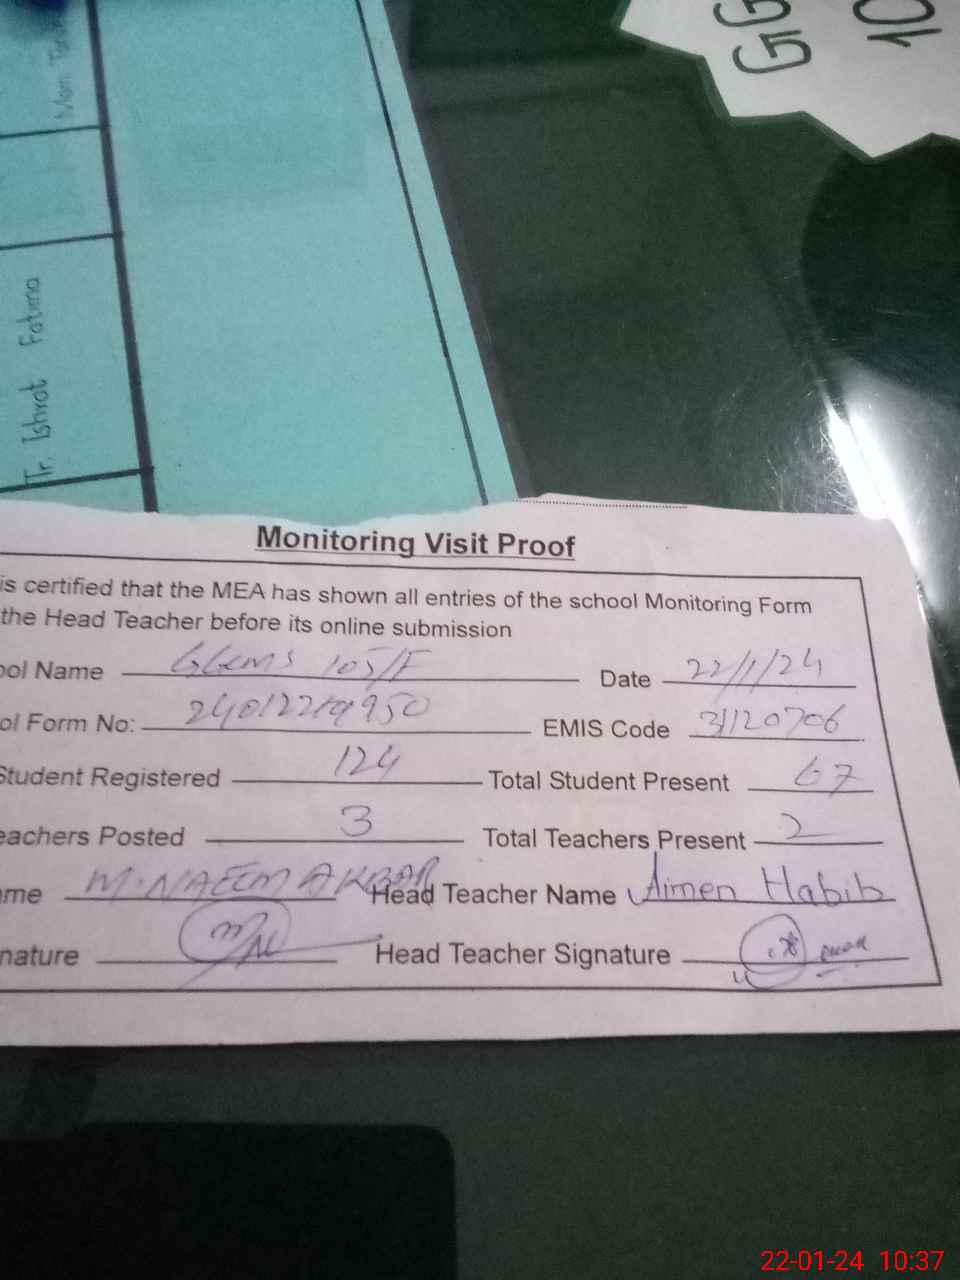 GG
10
Man
Tr. Ishrat Fatima
Monitoring Visit Proof
is certified that the MEA has shown all entries of the school Monitoring Form
the Head Teacher before its online submission
ool Name 105/F Date 22/1/24
ol Form No: EMIS Code 31120706
Student Registered 124 Total Student Present 67
eachers Posted 3 Total Teachers Present 2
me M. NAEEM AKBAR Head Teacher Name Aimen Habib
nature Head Teacher Signature
22-01-24 10:37